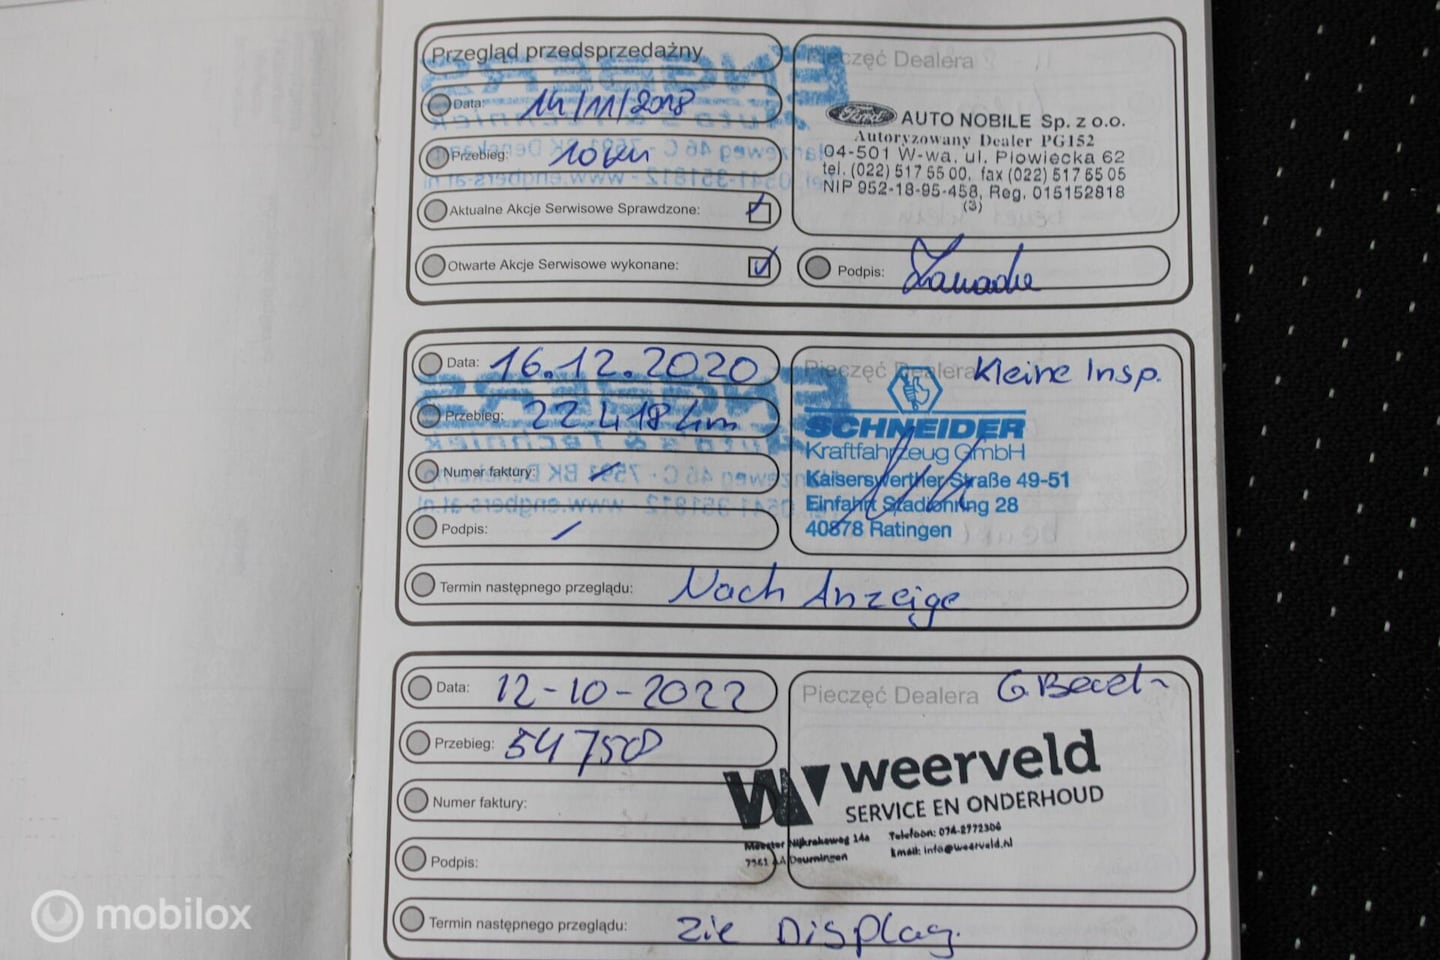 Przegląd przedsprzedażny
Data: 14/11/2018
Przebieg: 10 km
Aktualne Akcje Serwisowe Sprawdzone:
Otwarte Akcje Serwisowe wykonane:
Pieczęć Dealera
Ford AUTO NOBILE Sp. z o.o.
Autoryzowany Dealer PG152
04-501 W-wa, ul. Płowiecka 62
tel. (022) 517 55 00, fax (022) 517 55 05
NIP 952-18-95-458, Reg. 015152818
(3)
Podpis:
Data: 16.12.2020
Przebieg: 22418 km
Numer faktury: /
Podpis: /
Pieczęć Dealera Kleine Insp.
SCHNEIDER
Kraftfahrzeug GmbH
Kaiserswerther Straße 49-51
Einfahrt Stadionring 28
40878 Ratingen
Termin następnego przeglądu: Nach Anzeige
Data: 12-10-2022
Przebieg: 54750
Numer faktury:
Podpis:
Pieczęć Dealera G Beurt
weerveld
SERVICE EN ONDERHOUD
Meester Nijkrakeweg 14a Telefoon: 074-2772306
7561 AA Deurningen Email: info@weerveld.nl
Termin następnego przeglądu: zie Display.
mobilox